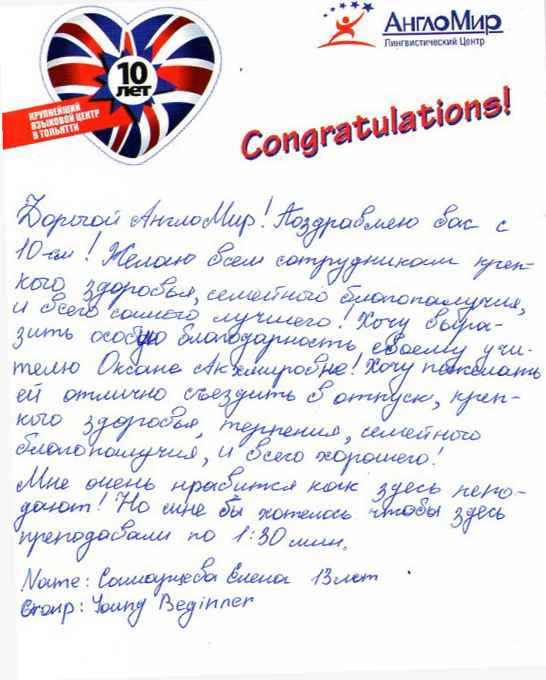 10
ЛЕТ
КРУПНЕЙШИЙ
ЯЗЫКОВОЙ ЦЕНТР
В ТОЛЬЯТТИ
АнглоМир
Лингвистический Центр
Congratulations!
Дорогой АнглоМир! Поздравляю вас с
10-ем! Желаю всем сотрудникам креп-
кого здоровья, семейного благополучия,
и всего самого лучшего! Хочу выра-
зить особую благодарность своему учи-
телю Оксане! Хочу пожелать
ей отлично съездить в отпуск, креп-
кого здоровья, терпения, семейного
благополучия, и всего хорошего!
Мне очень нравится как здесь препо-
дают! Но мне бы хотелось чтобы здесь
преподавали по 1:30 мин.
Name: Елена 13 лет
Group: Young Beginner